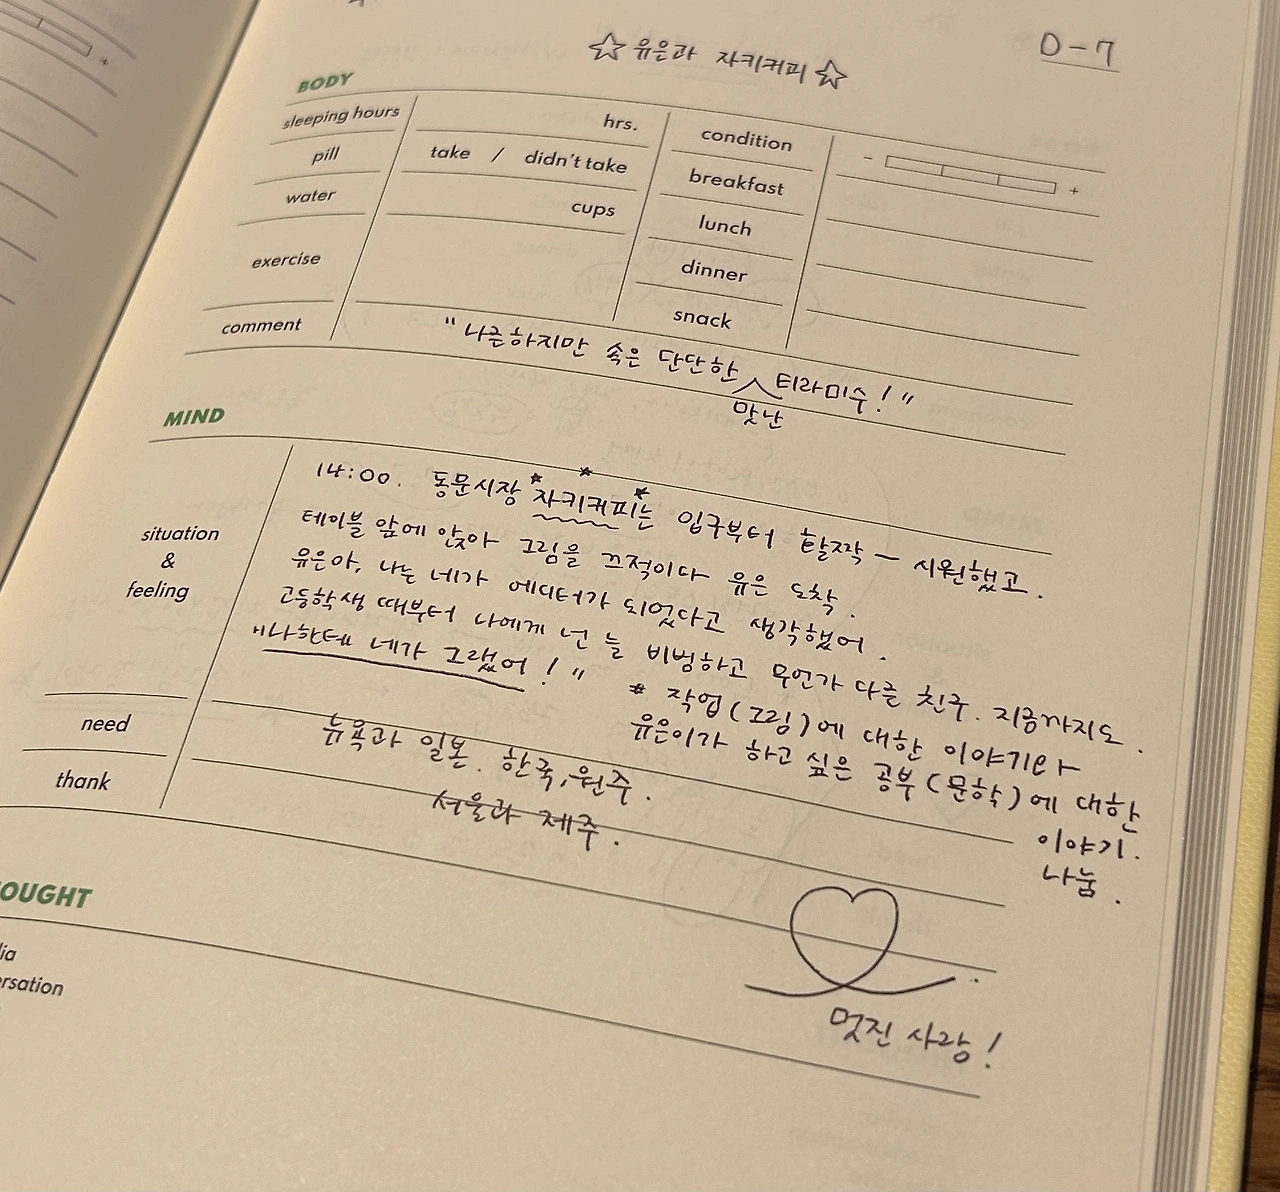 D-7
☆유은과 자키커피☆
BODY
sleeping hours hrs. condition - +
pill take / didn't take breakfast
water cups lunch
exercise dinner
snack
comment "나른하지만 속은 단단한 맛난 티라미수!"
MIND
situation & feeling
14:00. 동문시장 자키커피는 입구부터 활짝 — 시원했고.
테이블 앞에 앉아 그림을 끄적이다 유은 도착.
유은아, 나는 네가 에디터가 되었다고 생각했어.
고등학생 때부터 나에게 넌 늘 비범하고 무언가 다른 친구. 지금까지도.
"나한테 네가 그랬어!"
* 작업(그림)에 대한 이야기와
유은이가 하고 싶은 공부(문학)에 대한
이야기.
나눔.
need 뉴욕과 일본. 한국, 원주.
thank 서울과 제주.
OUGHT
lia
ersation
멋진 사랑!